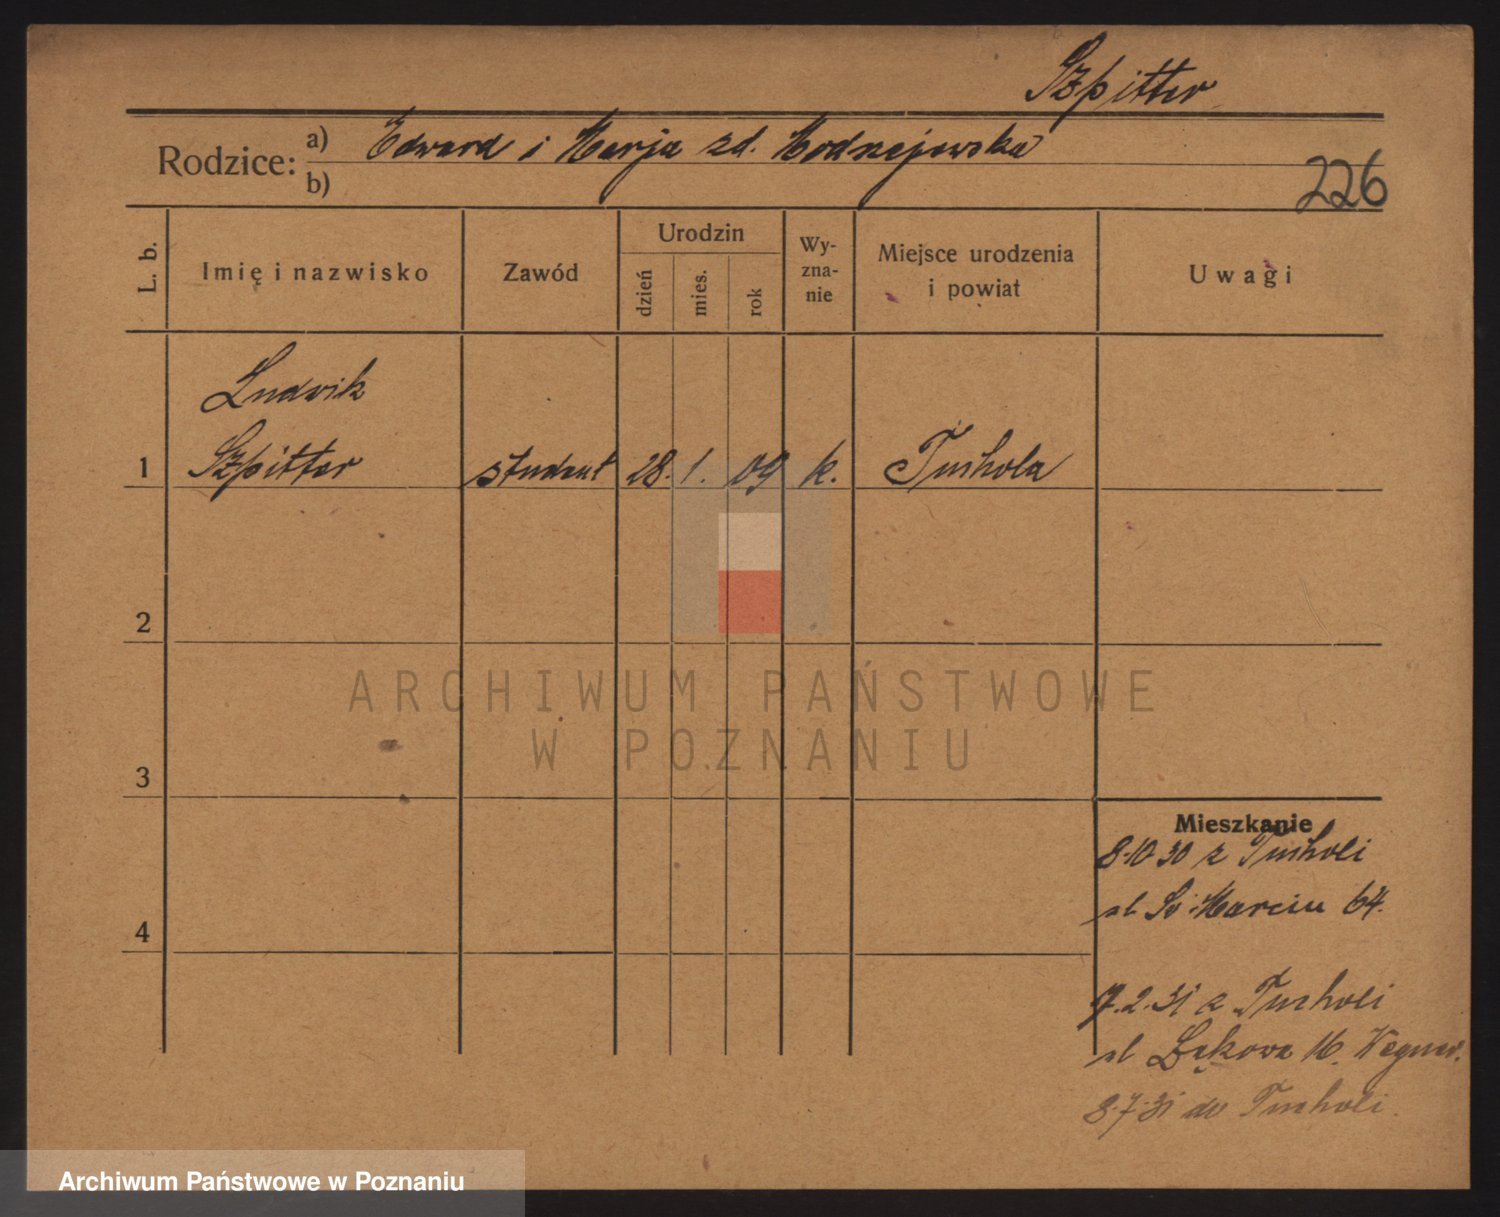 Szpitter
Rodzice: a) Edward i Marja zd. Modrzejewska
b)
226
L. b.
Imię i nazwisko
Zawód
Urodzin
dzień
mies.
rok
Wy-
zna-
nie
Miejsce urodzenia
i powiat
Uwagi
Ludwik
1 Szpitter student 28. 1. 09 k. Tuchola
2
3
4
Mieszkanie
8.10 30 z Tucholi
ul Św Marcin 64.
7.2.31 z Tucholi
ul Łąkowa 16. Wegner.
8.7.31 do Tucholi.
ARCHIWUM PAŃSTWOWE
W POZNANIU
Archiwum Państwowe w Poznaniu